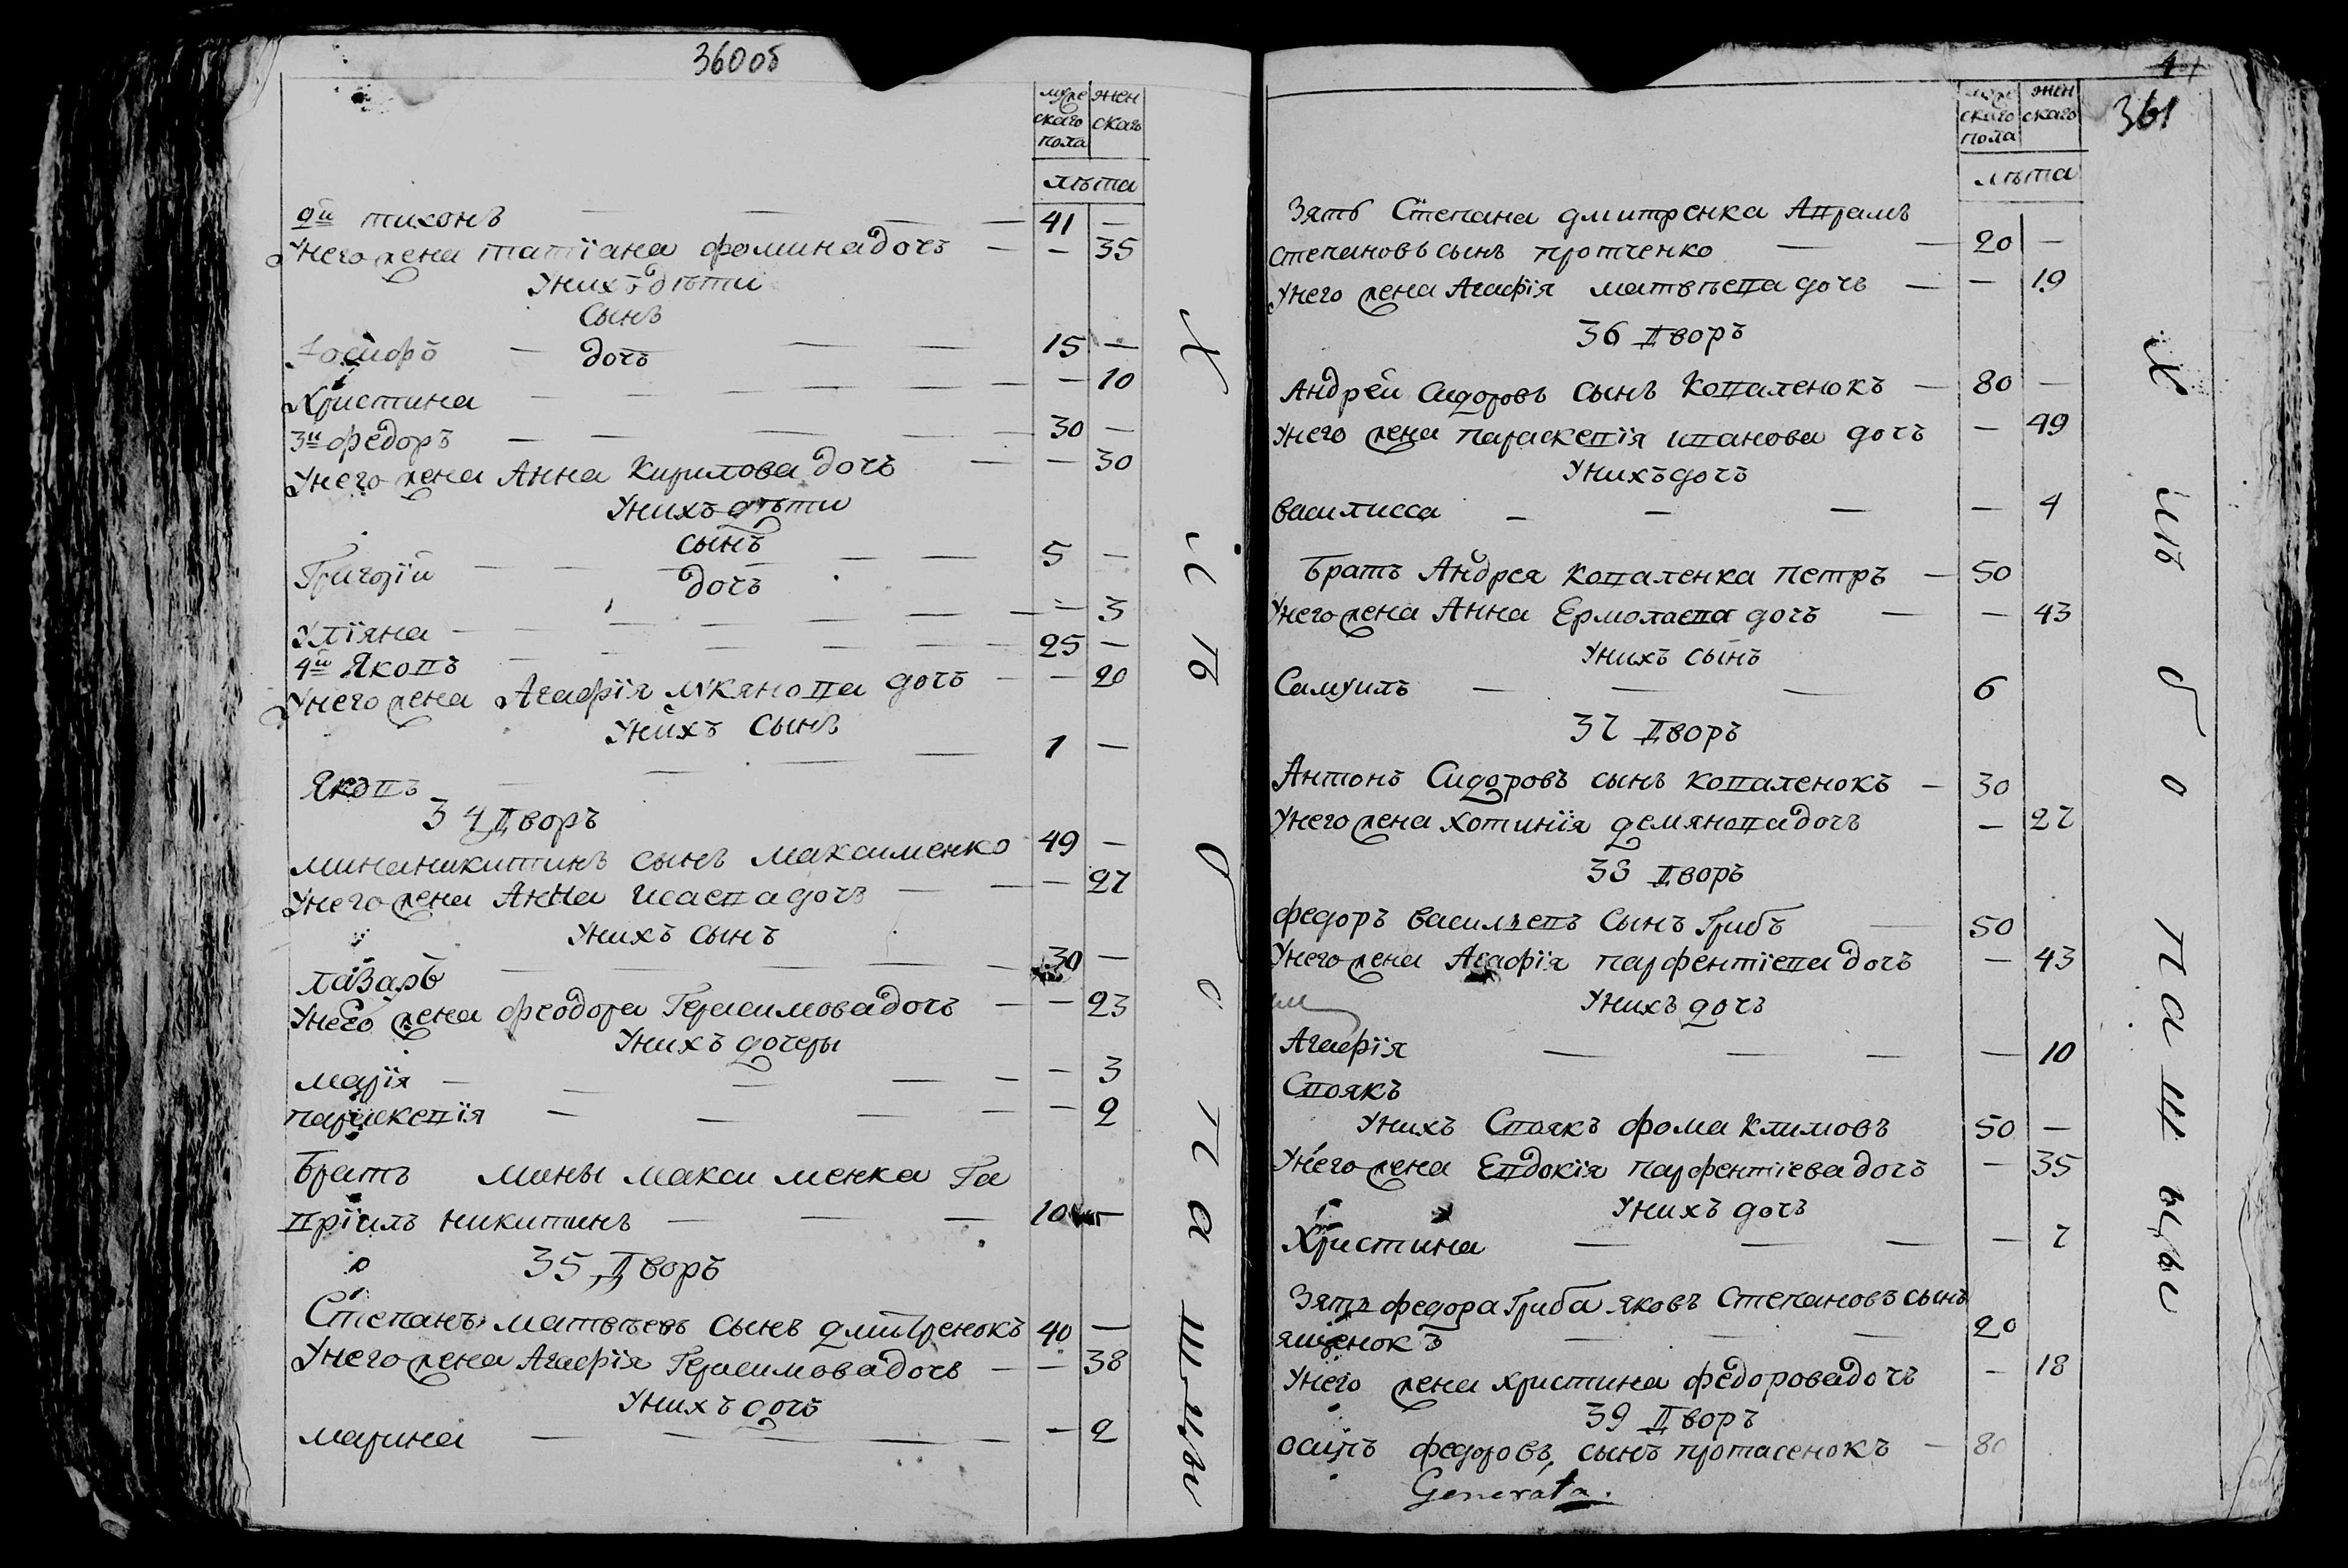 360 об
муже женскаго
скаго
пола
лѣта
2й тихонъ — — — 41 —
Унего жена татїана фоминадочъ — — 35
Унихъ дѣти
сынъ
Іосифъ — — — 15 —
дочь
Христина — — — — 10
3й федоръ — — — 30 —
Унего жена Анна Кирилова дочъ — — 30
Унихъ дѣти
сынъ
Григорїй — — — 5 —
дочъ
Улїяна — — — — 3
4й Яковъ — — — 25 —
Унего жена Агафїя лукянова дочъ — — 20
Унихъ сынъ
Яковъ — — — 1 —
34 Дворъ
минаникитинъ сынъ максименко 49 —
Унего жена Анна Исаева дочъ — — 27
Унихъ сынъ
лазаръ — — — 30 —
Унего жена феодора Герасимовадочъ — — 23
Унихъ дочеры
марїя — — — — 3
параскевїя — — — — 2
Братъ мины макси менка Га
врїилъ никитинъ — — — 10 —
35 Дворъ
Степанъ матвѣевъ сынъ дмитренокъ 40 —
Унего жена Агафїя Герасимовадочъ — — 38
Унихъ дочъ
марина — — — — 2
Хлѣбопашцы
361
муже женскаго
скаго
пола
лѣта
Зять Степана дмитренка Аврамъ
степановъ сынъ протченко — — 20 —
Унего жена Агафїя матвѣева дочъ — — 19
36 Дворъ
Андрей Сидоровъ сынъ Коваленокъ — 80 —
Унего жена параскевїя иванова дочъ — 49
Унихъ дочъ
василисса — — — — 4
Братъ Андрея коваленка петръ — 50
Унего жена Анна Ермолаева дочъ — — 43
Унихъ сынъ
Самуилъ — — — 6
37 Дворъ
Антонъ Сидоровъ сынъ коваленокъ — 30
Унего жена хотинїя демяновадочъ — 27
38 Дворъ
федоръ васильевъ сынъ Грибъ — 50
Унего жена Агафїя парфентїева дочъ — 43
Унихъ дочъ
Агафїя — — — — 10
Своякъ
Унихъ Своякъ фома климовъ 50 —
Унего жена Евдокїя парфентїева дочъ — 35
Унихъ дочъ
Христина — — — — 7
Зять федора Гриба яковъ Степановъ сынъ
ященокъ — — — 20
Унего жена христина федоровадочъ — 18
39 Дворъ
осипъ федоровъ сынъ протасенокъ — 80
Generata.
Хлѣбопашцы